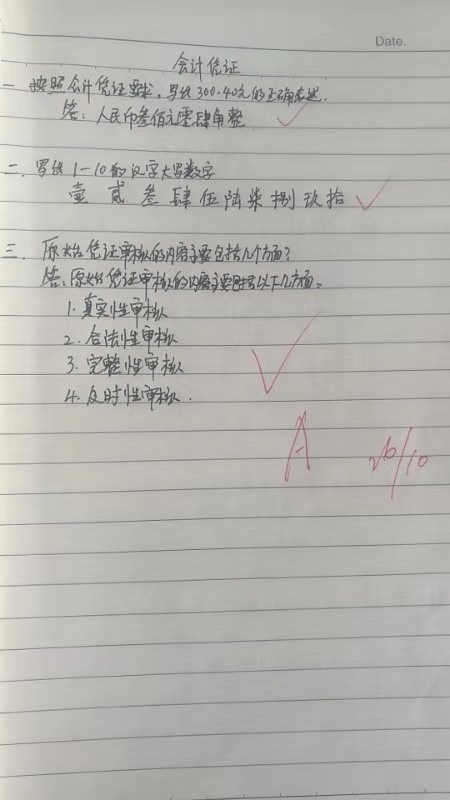 Date.
会计凭证
一 按照会计凭证要求,写出300.40元的正确表述.
答:人民币叁佰元零肆角整
二. 写出1-10的汉字大写数字
壹 贰 叁 肆 伍 陆 柒 捌 玖 拾
三. 原始凭证审核的内容主要包括几个方面?
答:原始凭证审核的内容主要包括以下几方面。
1. 真实性审核
2. 合法性审核
3. 完整性审核
4. 及时性审核.
A
26/10